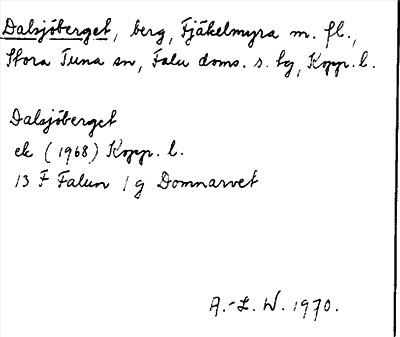 Dalsjöberget, berg, Fjäkelmyra m. fl.,
Stora Tuna sn, Falu doms. s. tg, Kopp. l.
Dalsjöberget
ek (1968) Kopp. l.
13 F Falun 1 g Domnarvet
A.-L. W. 1970.